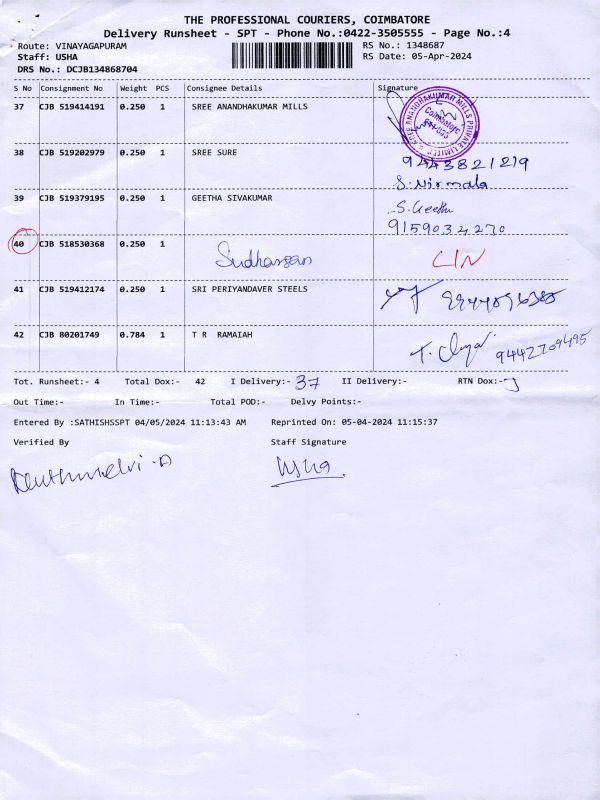 THE PROFESSIONAL COURIERS, COIMBATORE
Delivery Runsheet - SPT - Phone No.:0422-3505555 - Page No.:4
Route: VINAYAGAPURAM RS No.: 1348687
Staff: USHA RS Date: 05-Apr-2024
DRS No.: DCJB134868704
S No Consignment No Weight PCS Consignee Details Signature
37 CJB 519414191 0.250 1 SREE ANANDHAKUMAR MILLS
SREE ANANDHAKUMAR MILLS PRIVATE LIMITED
Coimbatore
38 CJB 519202979 0.250 1 SREE SURE 9443821219
S. Nirmala
39 CJB 519379195 0.250 1 GEETHA SIVAKUMAR S. Geetha
9159034270
40 CJB 518530368 0.250 1 Sudharsan
41 CJB 519412174 0.250 1 SRI PERIYANDAVER STEELS
42 CJB 80201749 0.784 1 T R RAMAIAH 9442709495
Tot. Runsheet:- 4 Total Dox:- 42 I Delivery:- 37 II Delivery:- RTN Dox:-
Out Time:- In Time:- Total POD:- Delvy Points:-
Entered By :SATHISHSSPT 04/05/2024 11:13:43 AM Reprinted On: 05-04-2024 11:15:37
Verified By Staff Signature
Usha